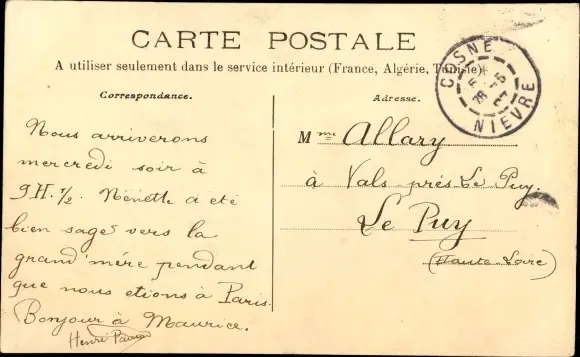 CARTE POSTALE
A utiliser seulement dans le service intérieur (France, Algérie, Tunisie)
Correspondance.
Nous arriverons
mercredi soir à
9H. ½. Nénette a été
bien sage vers la
grand'mère pendant
que nous etions à Paris.
Bonjour à Maurice.
Henri
Adresse.
Mme Allary
à Vals près Le Puy.
Le Puy
(Haute Loire)
COSNE
NIEVRE